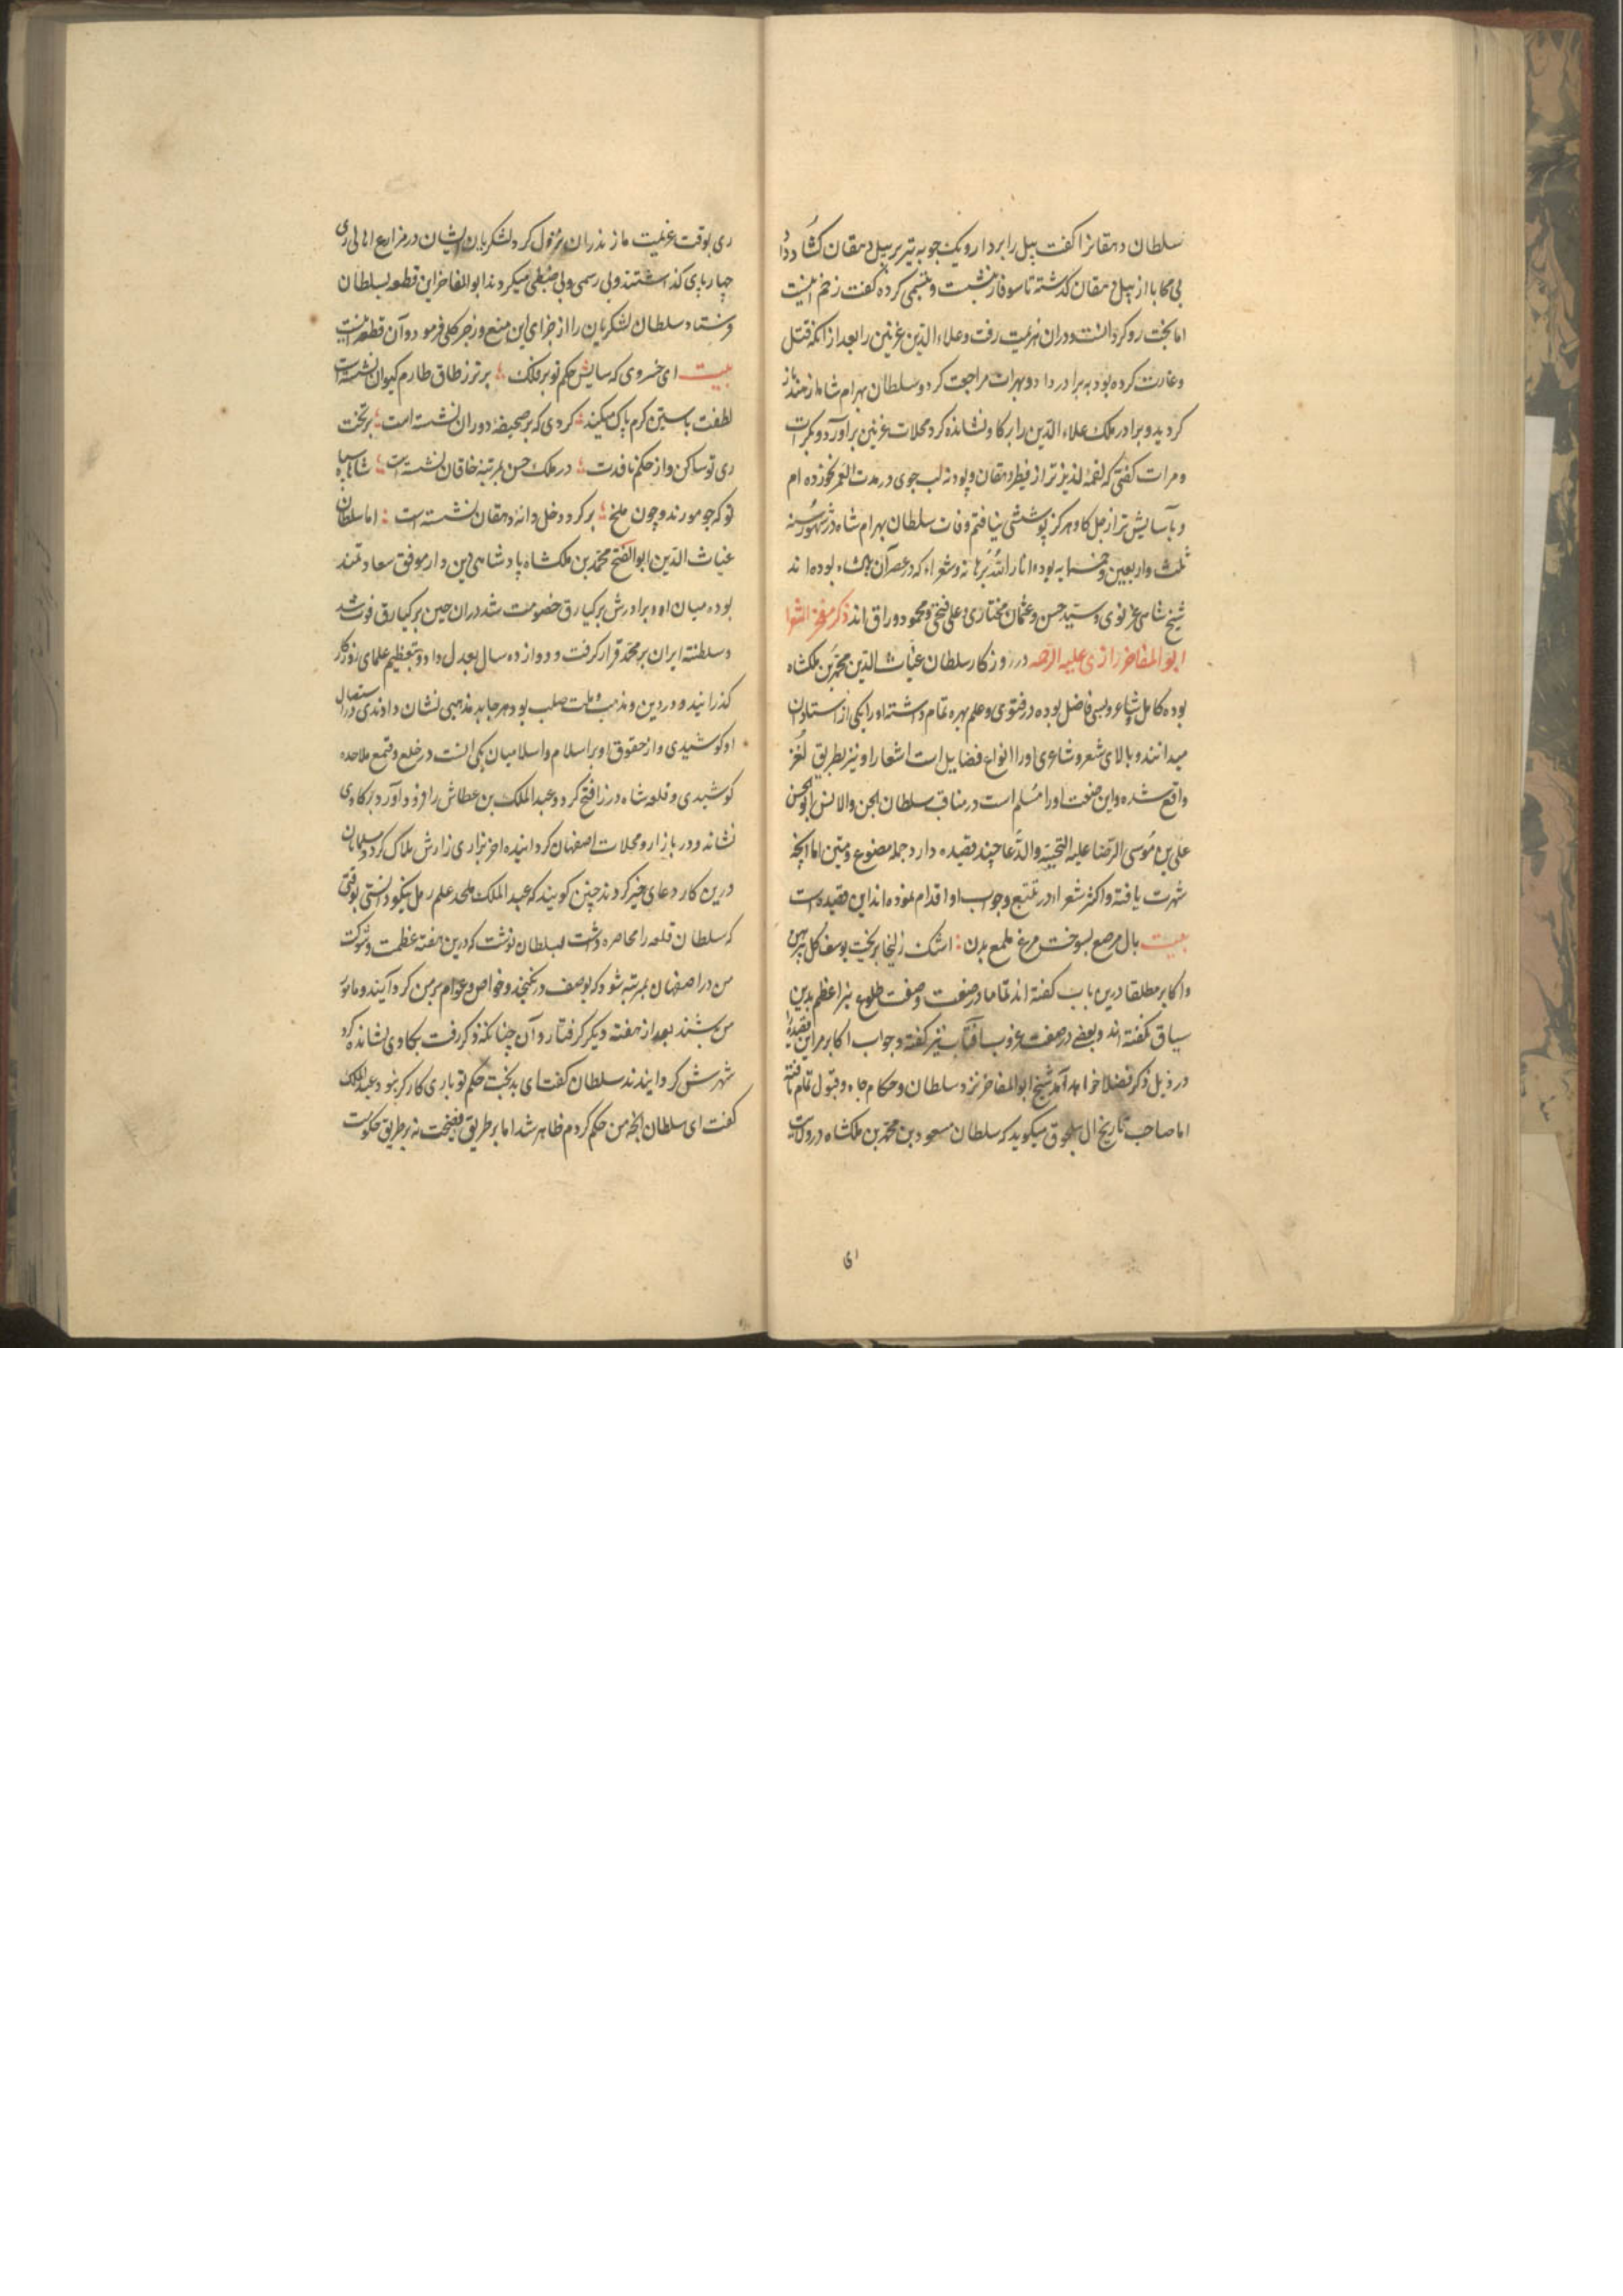 سلطان دهقانرا کفت بیل را بردار و یک چوبه تیر بر بیل دهقان کشاد داد
بی محابا از بیل دهقان کذشته تا سوفار بنشست و تبسمی کرده کفت زخم اینست
اما بخت رو کردانست و دران هزیمت رفت و علاء الدین غزنین را بعد از آنکه قتل
و غارت کرده بود به برادر داد و بهرات مراجعت کرد و سلطان بهرام شاه از هند باز
کردید و برادر ملک علاء الدین را بر کاو نشانده کرد محلات غزنین برآورد و بکرات
و مرات کفتی که لقمهٔ لذیذتر از فطیر دهقان و پودنه لب جوی در مدت العمر نخورده ام
و بآسایش تر از جل کاو هرکز پوششی نیافتم وفات سلطان بهرام شاه در شهور سنه
ثلث و اربعین و خمسمایه بوده انار الله برهانه و شعراء که در عصر آن پادشاه بوده اند
شیخ سنائی غزنوی و سید حسن و عثمان مختاری و علی فتحی و محمود وراق اند ذکر مفخر الشعرا
ابوالمفاخر رازی علیه الرحمه در روزکار سلطان غیاث الدین محمد بن ملکشاه
بوده کامل و شاعر و بسی فاضل بوده در فتوی و علم بهره تمام داشته او را یکی از استادان
میدانند و بالای شعر و شاعری او را انواع فضایل است اشعار او نیز بطریق لغز
واقع شده و این صنعت او را مسلم است در مناقب سلطان الجن والانس ابوالحسن
علی بن موسی الرضا علیه التحیة والدعا چند قصیده دارد جمله مصنوع و متین اما آنچه
شهرت یافته و اکثر شعراء در تتبع و جواب او اقدام نموده اند این قصیده است
بیت بال مرصع بسوخت مرغ ملمع بدن : اشک زلیخا بریخت یوسف کل پیرهن
و اکابر مطلقا درین باب کفته اند تماما در صنعت و صفت طلوع نیر اعظم بدین
سیاق نکفته اند و بعضی در صفت غروب آفتاب نیز کفته و جواب اکابر مر این قصیده را
در ذیل ذکر فضلا خواهد آمد شیخ ابوالمفاخر نزد سلطان و حکام جاه و قبول تمام یافته
اما صاحب تاریخ ال سلجوق میکوید که سلطان مسعود بن محمد بن ملکشاه در ولایت
ای
ری بوقت عزیمت مازندران نزول کرد لشکریان ایشان در مزارع اهالی ری
چهارپای کذاشتند و بی رسمی و بی ضبطی میکردند ابوالمفاخر این قطعه بسلطان
فرستاد سلطان لشکریان را از چرای این منع و زجر کلی فرمود و آن قطعه اینست
بیت ای خسروی که سایش حکم تو بر فلک : برتر ز طاق طارم کیوان نشسته است
لطفت باستین کرم پاک میکند : کردی که بر صحیفهٔ دوران نشسته است : بر تخت
ری تو ساکن و از حکم نافذت : در ملک حسن بمرتبه خاقان نشسته است : شاها سپاه
تو که چو مورند و چون ملخ : بر کرد دخل و دانهٔ دهقان نشسته است : اما سلطان
غیاث الدین ابوالفتح محمد بن ملکشاه پادشاهی دین دار موفق سعادتمند
بوده میان او و برادرش برکیارق خصومت شد دران حین برکیارق فوت شد
و سلطنته ایران بر محمد قرار کرفت و دوازده سال بعدل و داد و بتعظیم علمای روزکار
کذرانید و در دین و مذهب و ملت صلب بود هر جا بد مذهبی نشان دادندی در استیصال
او کوشیدی و از حقوق او بر اسلام و اسلامیان یکی انست در خلع و قمع ملاحده
کوشیدی و قلعه شاه درز را فتح کرد و عبد الملک بن عطاش را فرود آورد بر کاوی
نشاند و در بازار و محلات اصفهان کردانیده اخر بزاری زارش هلاک کرد و مسلمانان
درین کار دعای خیر کردند چنین کویند که عبد الملک ملحد علم رمل نیکو دانستی بوقتی
که سلطان قلعه را محاصره داشت بسلطان نوشت که درین هفته عظمت و شوکت
من در اصفهان بمرتبه شود که بوصف در نکنجد و خواص و عوام بر من کرد آیند و مامور
من شند بعد از هفته دیکر کرفتار و آن چنانکه ذکر رفت بکاوی نشانده کرد
شهرش کردایندند سلطان کفت ای بدبخت حکم تو باری کارکر نبود عبدالملک
کفت ای سلطان آنچه من حکم کردم ظاهر شد اما بر طریق فضیحت نه بر طریق حکومت